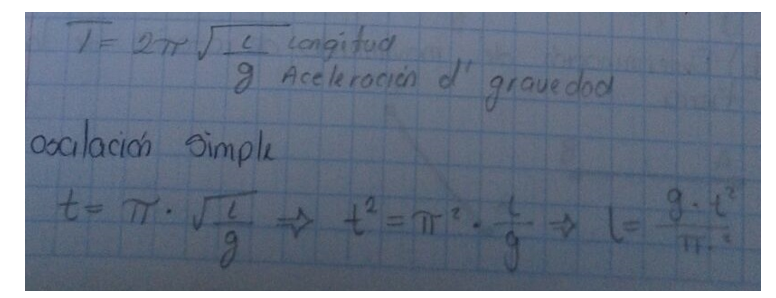 T = 2π √L/g Longitud
Aceleración d' gravedad
oscilación simple
t = π · √L/g ⇒ t² = π² · L/g ⇒ L = g · t²/π²